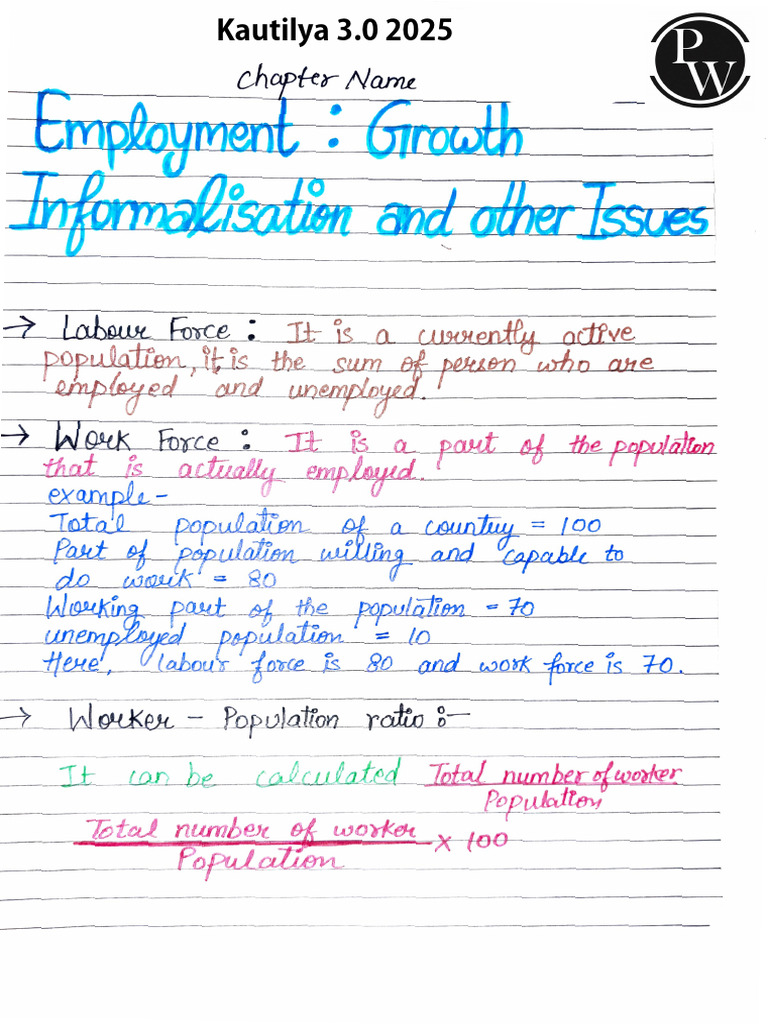 Kautilya 3.0 2025
PW
Chapter Name
Employment : Growth
Informalisation and other Issues
→ Labour Force : It is a currently active
population, it is the sum of person who are
employed and unemployed.
→ Work Force : It is a part of the population
that is actually employed.
example-
Total population of a country = 100
Part of population willing and capable to
do work = 80
Working part of the population = 70
unemployed population = 10
Here, labour force is 80 and work force is 70.
→ Worker - Population ratio :-
It can be calculated Total number of worker
Population
Total number of worker × 100
Population